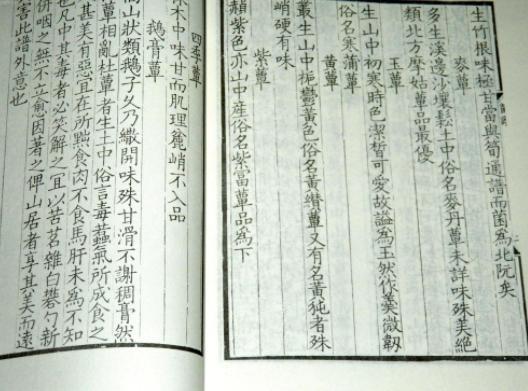 生竹根味極甘當與筍通譜而菌為北阮矣
麥蕈
多生溪邊沙壤鬆土中俗名麥丹蕈未詳味殊美絕
類北方摩姑蕈品最優
玉蕈
生山中初寒時色潔皙可愛故謚為玉然作羹微韌
俗名寒蒲蕈
黃蕈
叢生山中梔鬱黃色俗名黃纘蕈又有名黃㹠者殊
峭硬有味
紫蕈
紫色亦山中産俗名紫當蕈品為下
四季蕈
木中味甘而肌理麄峭不入品
鵝膏蕈
高山狀類鵝子久乃繖開味殊甘滑不謝稠膏然
蕈相亂杜蕈者生土中俗言毒蠚氣所成食之
甚美有惡宜在所黜食肉不食馬肝未為不知
也凡中其毒者必笑解之宜以苦茗雜白礬勺新
併咽之無不立愈因著之俾山居者享其美而遠
害此譜外意也